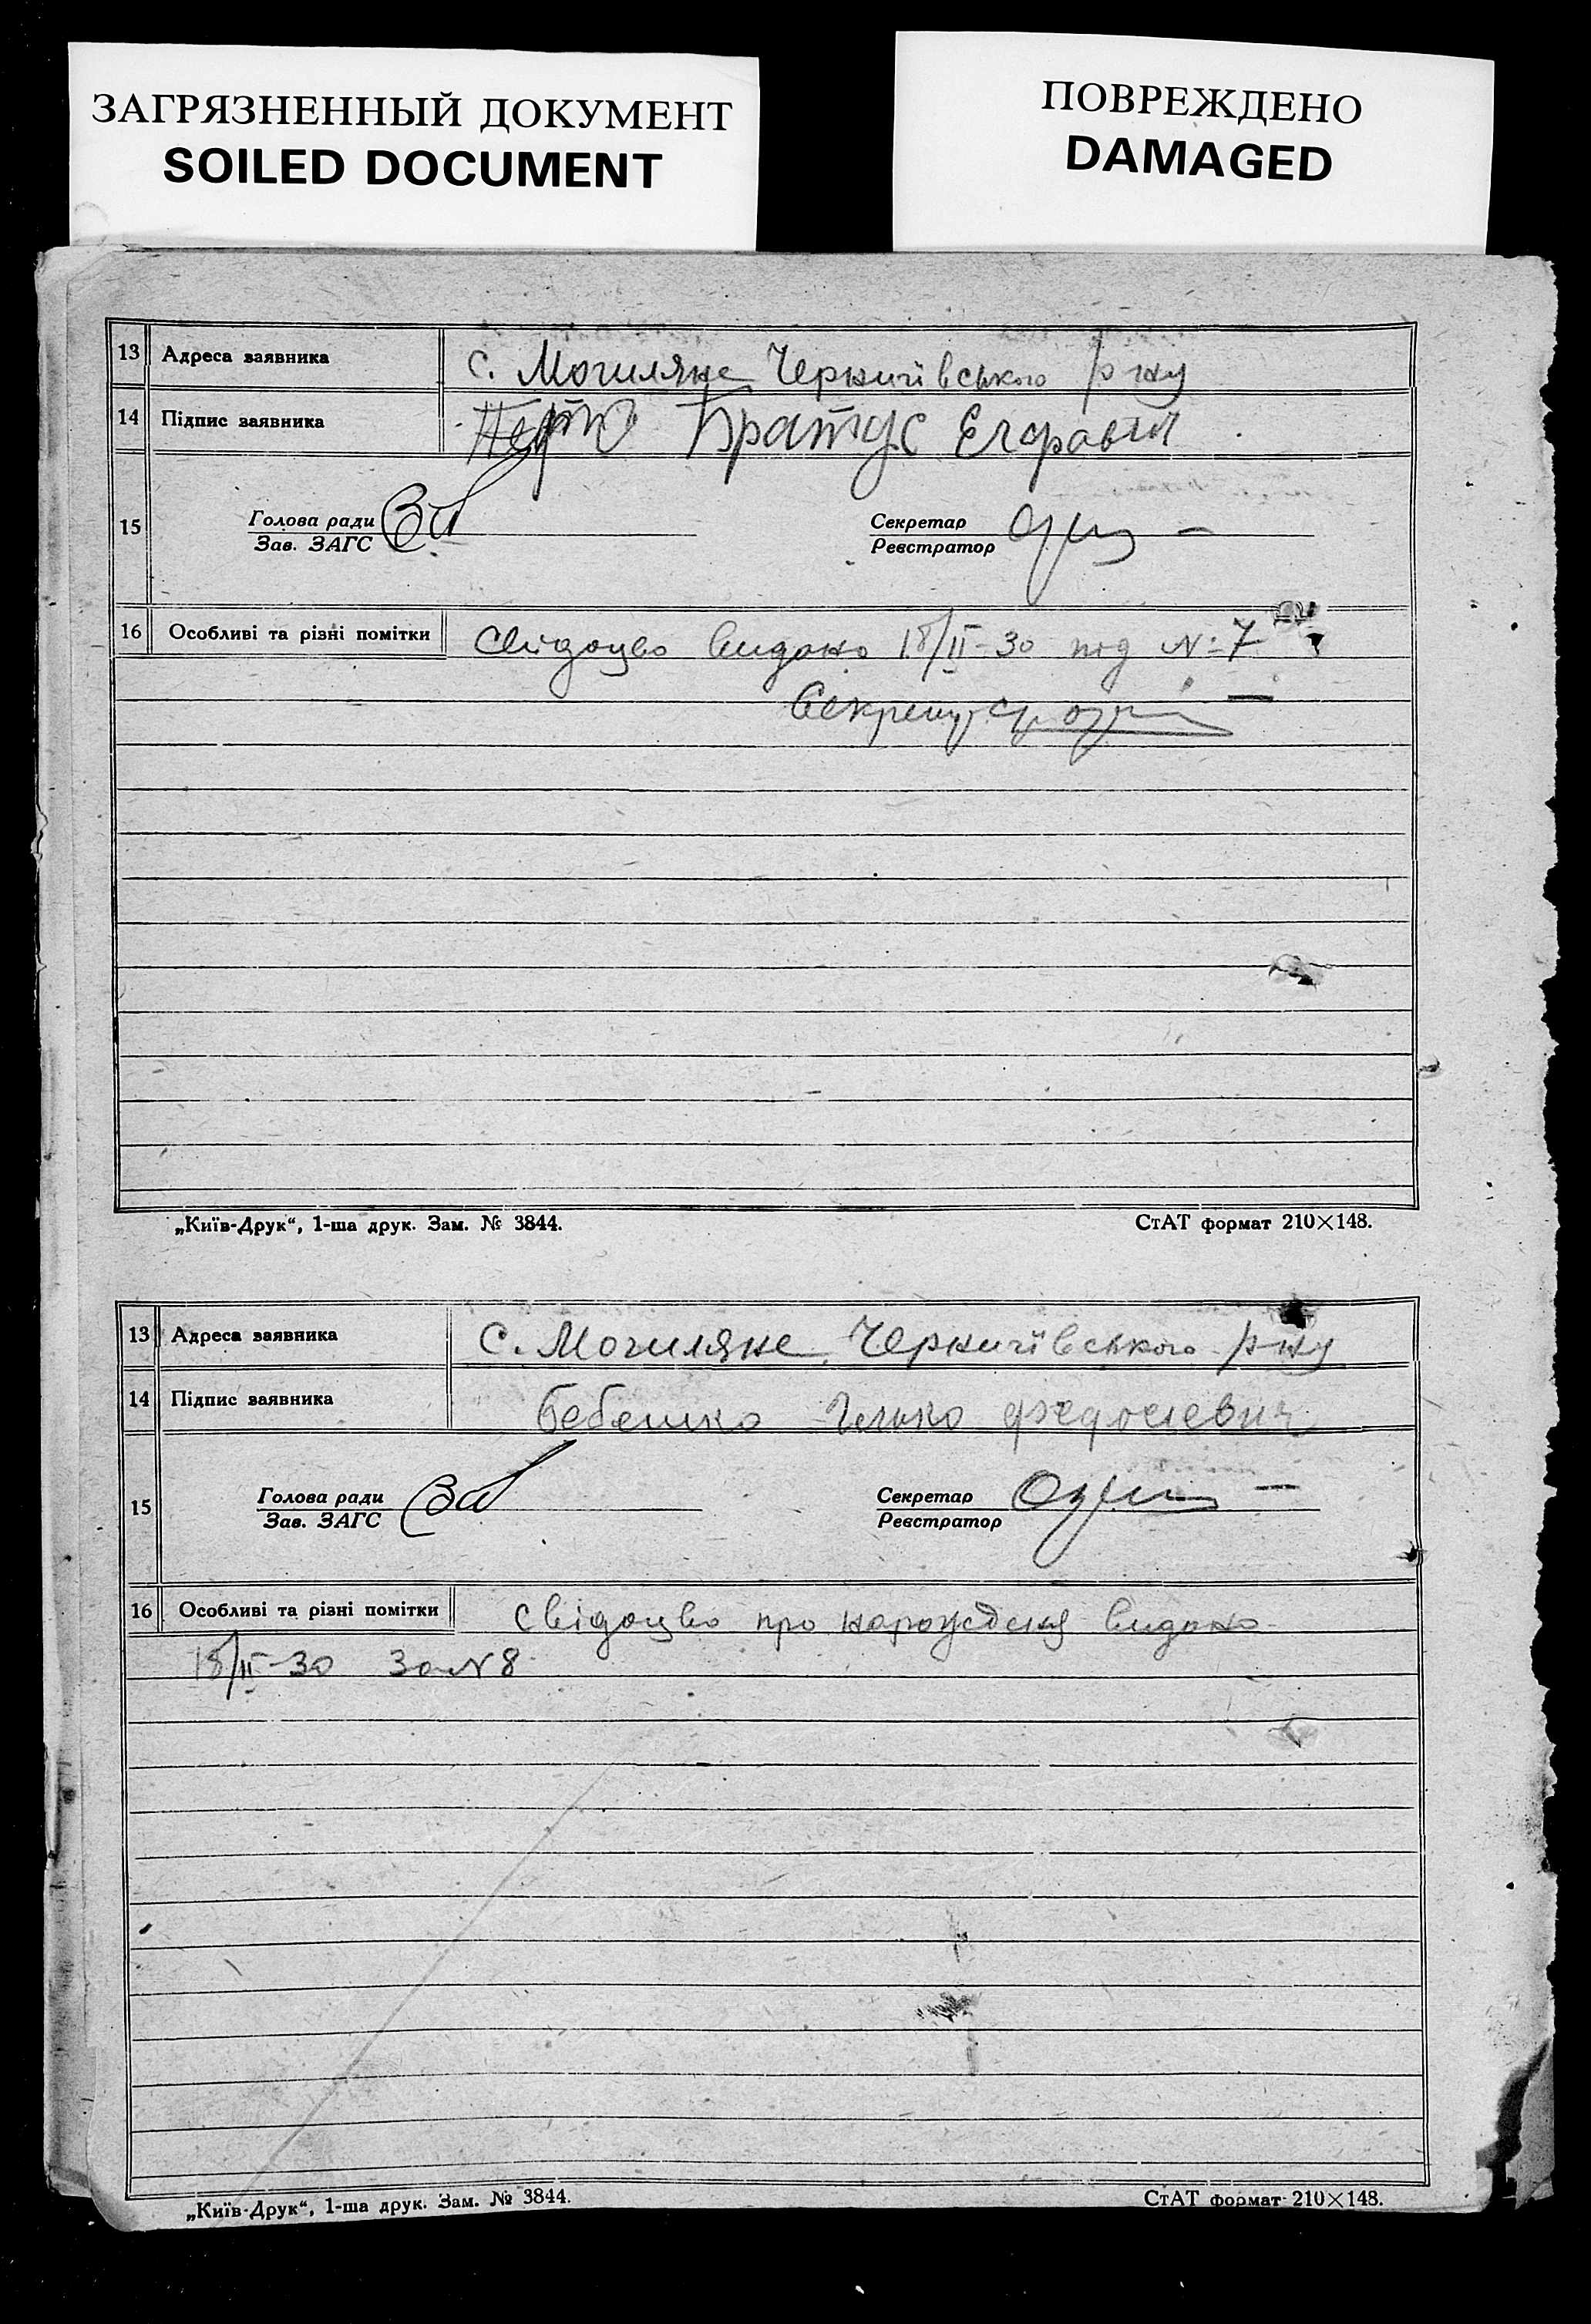 ЗАГРЯЗНЕННЫЙ ДОКУМЕНТ
SOILED DOCUMENT
ПОВРЕЖДЕНО
DAMAGED
13 Адреса заявника с. Могиляне Чернигівського р-ну
14 Підпис заявника Братус Егоравич
15 Голова ради
Зав. ЗАГС
Секретар
Реєстратор
16 Особливі та різні помітки Свідоцво видано 18/II-30 під № 7
Секретар
„Київ-Друк“, 1-ша друк. Зам. № 3844. СтАТ формат 210×148.
13 Адреса заявника С. Могиляне Чернигівського р-ну
14 Підпис заявника Бебешко Федосіевич
15 Голова ради
Зав. ЗАГС
Секретар
Реєстратор
16 Особливі та різні помітки Свідоцво про народження видано
18/II-30 За № 8
„Київ-Друк“, 1-ша друк. Зам. № 3844. СтАТ формат 210×148.